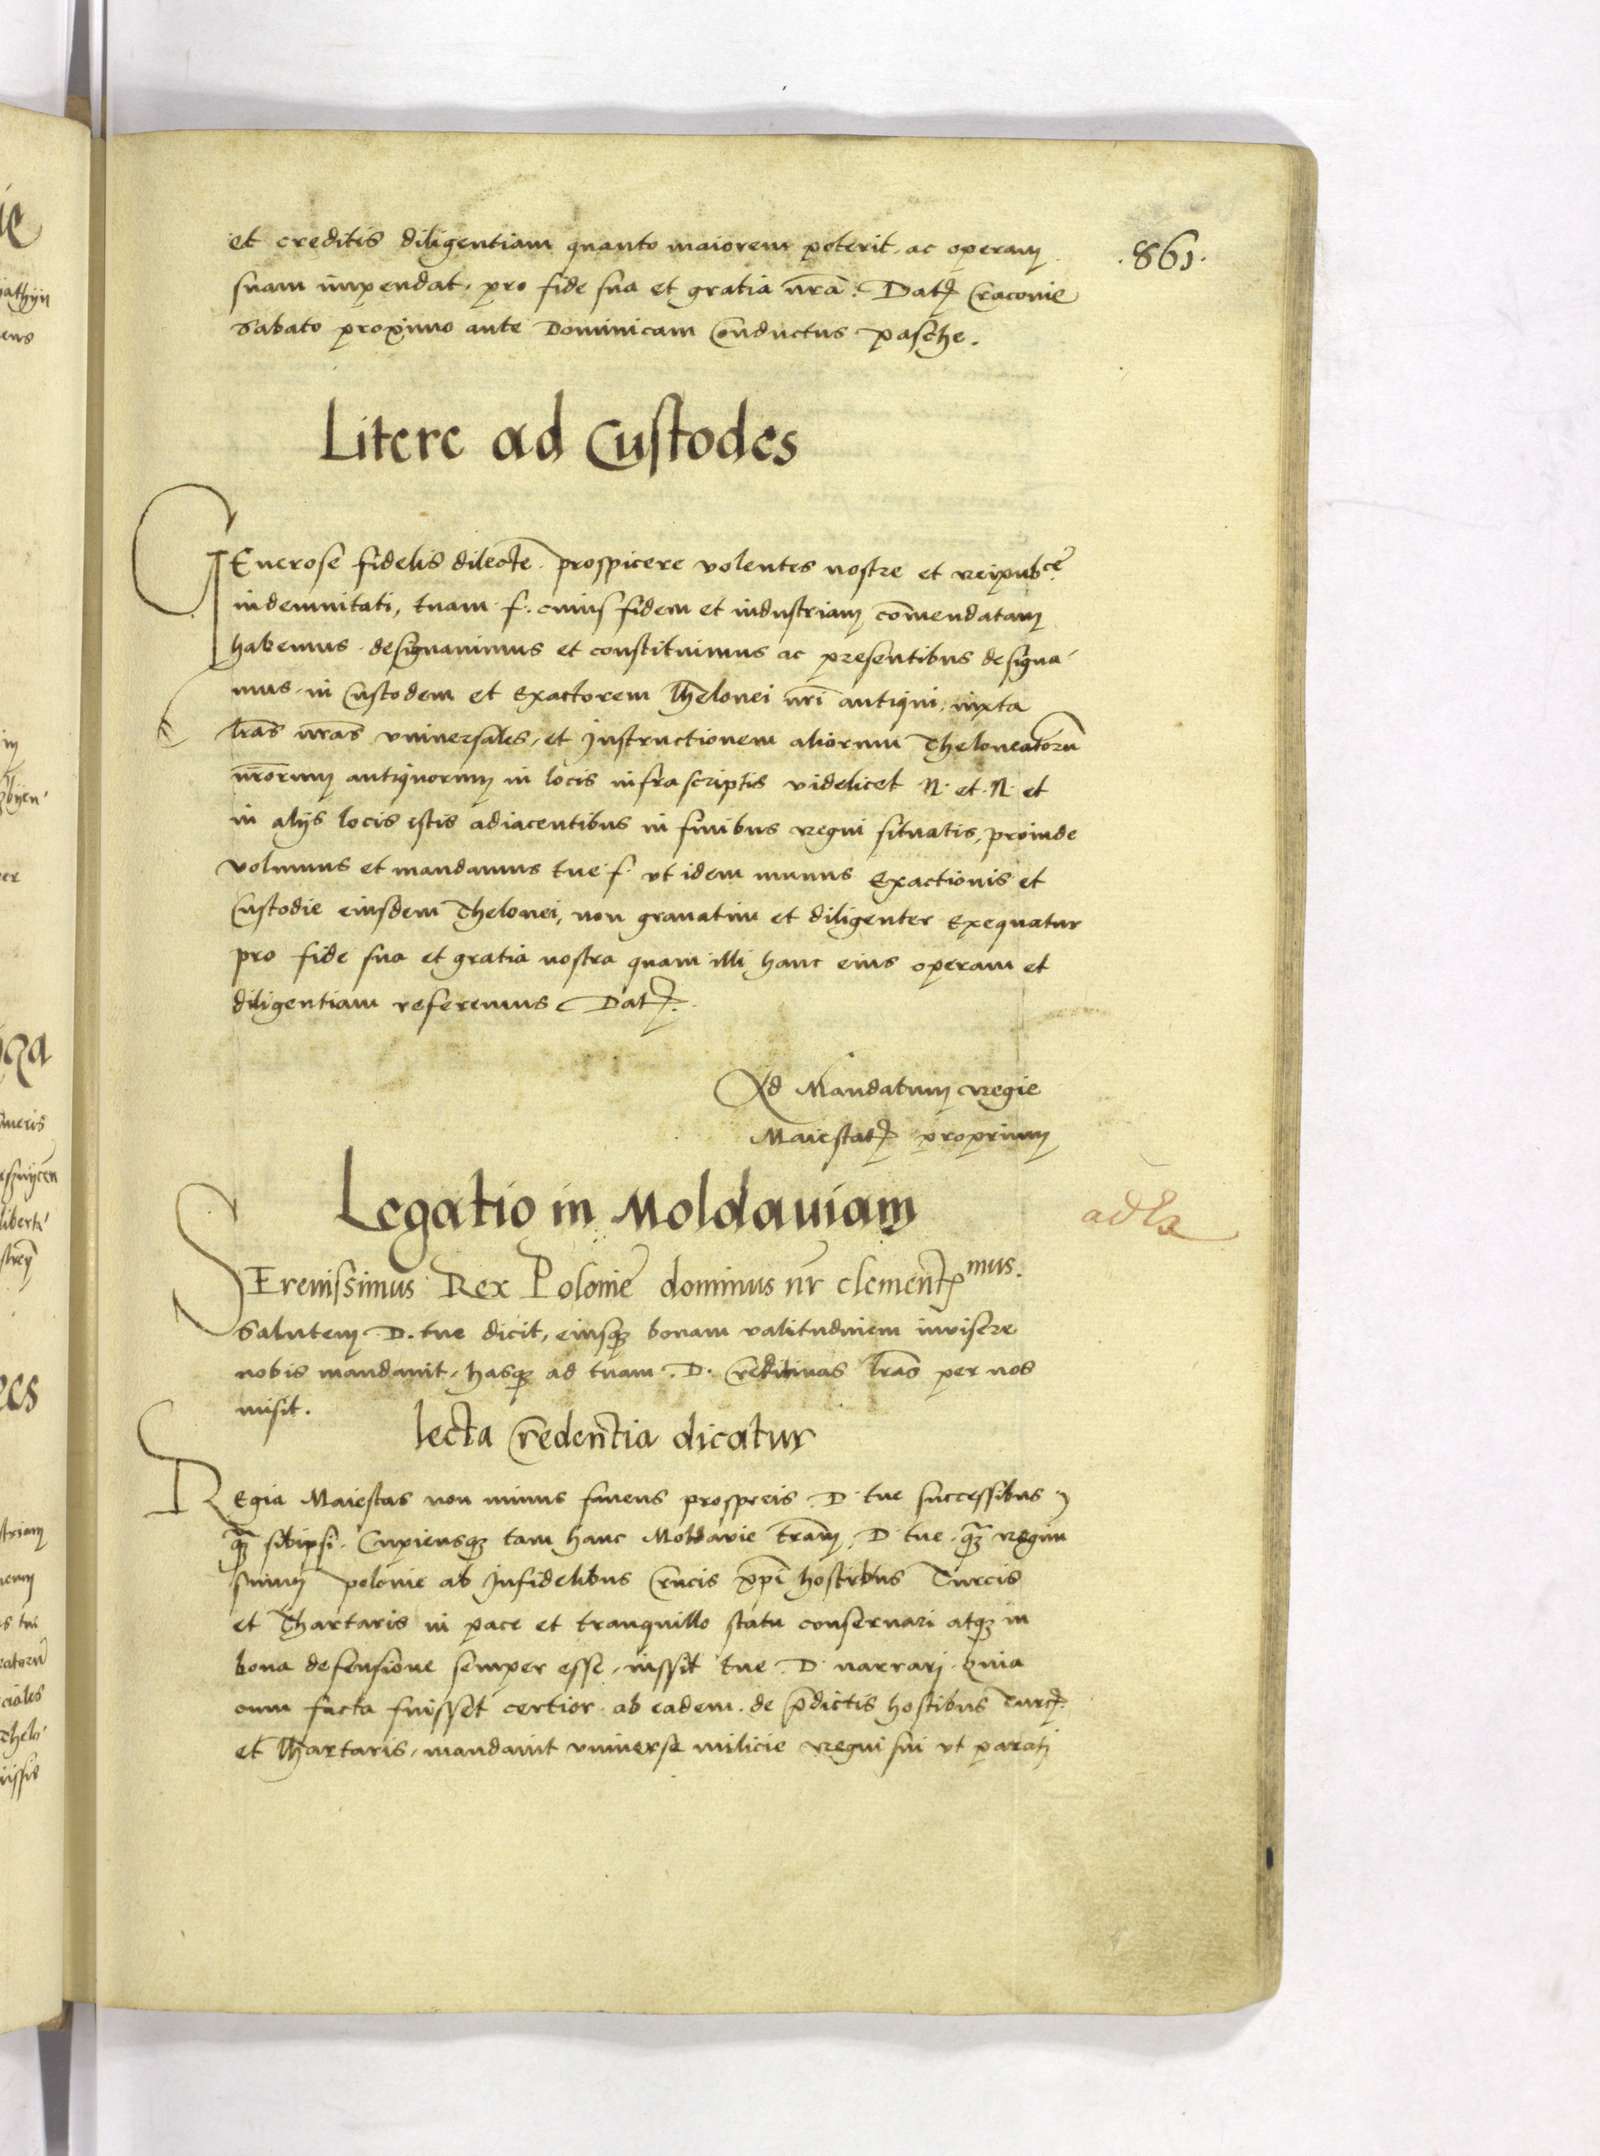 .861.
et creditis diligentiam quanto maiorem poterit, ac operam
suam impendat, pro fide sua et gratia nrã. Datȝ Cracovie
Sabato proximo ante Dominicam Conductus Pasche.
Litere ad Custodes
GEnerose fidelis dilecte prospicere volentes nostre et reipubce
indemnitati, tuam f. cuius fidem et industriam com̄endatam
habemus designavimus et constituimus ac presentibus designa-
mus, in Custodem et Exactorem Thelonei nrī antiqui, iuxta
lrãs nrãs universales, et Instructionem aliorum Theloneatorū
nrōrum antiquorum in locis infrascriptis videlicet N. et N. et
in alijs locis istis adiacentibus in finibus regni situatis, proinde
volumus et mandamus tue f. ut idem munus Exactionis et
Custodie eiusdem Thelonei, non gravatim et diligenter Exequatur
pro fide sua et gratia nostra quam illi hanc eius operam et
diligentiam referemus Datȝ.
Ad Mandatum regie
Maiestatȝ proprium
Legatio in Moldauiam
adla
SErenissimus Rex Polonie dominus nr̄ clementȝmus.
Salutem D. tue dicit, eiusqȝ bonam valitudinem invisere
nobis mandavit, hasqȝ ad tuam D. Creditivas lrãs per nos
misit.
lecta Credentia dicatur
REgia Maiestas non minus favens prosperis D. tue successibus
qȝ̄ sibipsi. Cupiensqȝ tam hanc Moldavie trām D. tue qȝ̄ regnu
suum polonie ab Infidelibus Crucis xp̄i hostibus Turcis
et Thartaris in pace et tranquillo statu conservari atqȝ in
bona defensione semper esse, iussit tue D. narrarj. Quia
cum facta fuisset certior ab eadem de p̄dictis hostibus Turcȝ.
et Thartaris, mandavit universe milicie regni sui ut paratj